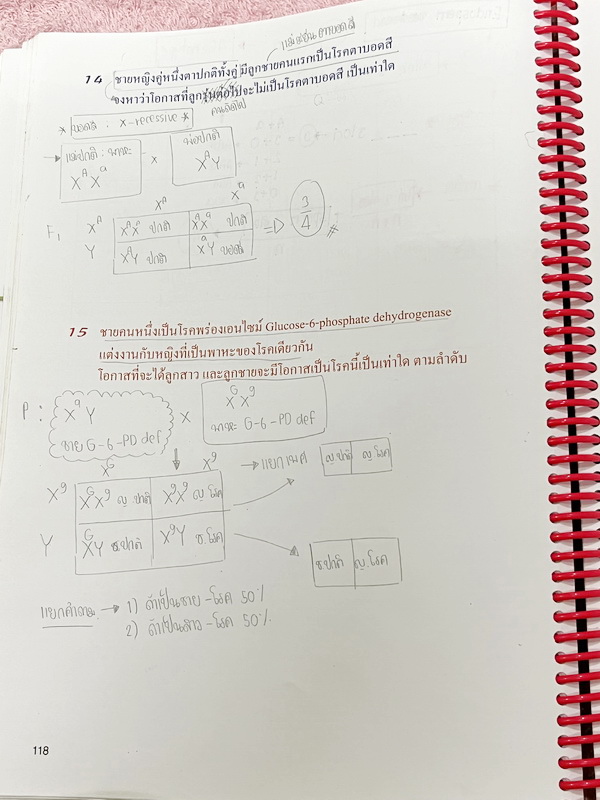 แม่ยีนตาบอดสี
14 ชายหญิงคู่หนึ่งตาปกติทั้งคู่ มีลูกชายคนแรกเป็นโรคตาบอดสี
จงหาว่าโอกาสที่ลูกรุ่นต่อไปจะไม่เป็นโรคตาบอดสี เป็นเท่าใด
คนถัดไป
* บอดสี : X-recessive *
แม่ปกติ : พาหะ × พ่อปกติ
X^A X^a X^A Y
X^A X^a
F₁ X^A X^A X^A ปกติ X^A X^a ปกติ ⇒ 3/4 #
Y X^A Y ปกติ X^a Y บอดสี
15 ชายคนหนึ่งเป็นโรคพร่องเอนไซม์ Glucose-6-phosphate dehydrogenase
แต่งงานกับหญิงที่เป็นพาหะของโรคเดียวกัน
โอกาสที่จะได้ลูกสาว และลูกชายจะมีโอกาสเป็นโรคนี้เป็นเท่าใด ตามลำดับ
P : X^g Y × X^G X^g
ชาย G-6-PD def พาหะ G-6-PD def
X^G X^g → แยกเพศ ญ.ปกติ ญ.โรค
X^g X^G X^g ญ.ปกติ X^g X^g ญ.โรค
Y X^G Y ช.ปกติ X^g Y ช.โรค
ช.ปกติ ญ.โรค
แยกคำถาม → 1) ถ้าเป็นชาย - โรค 50%
2) ถ้าเป็นสาว - โรค 50%
118